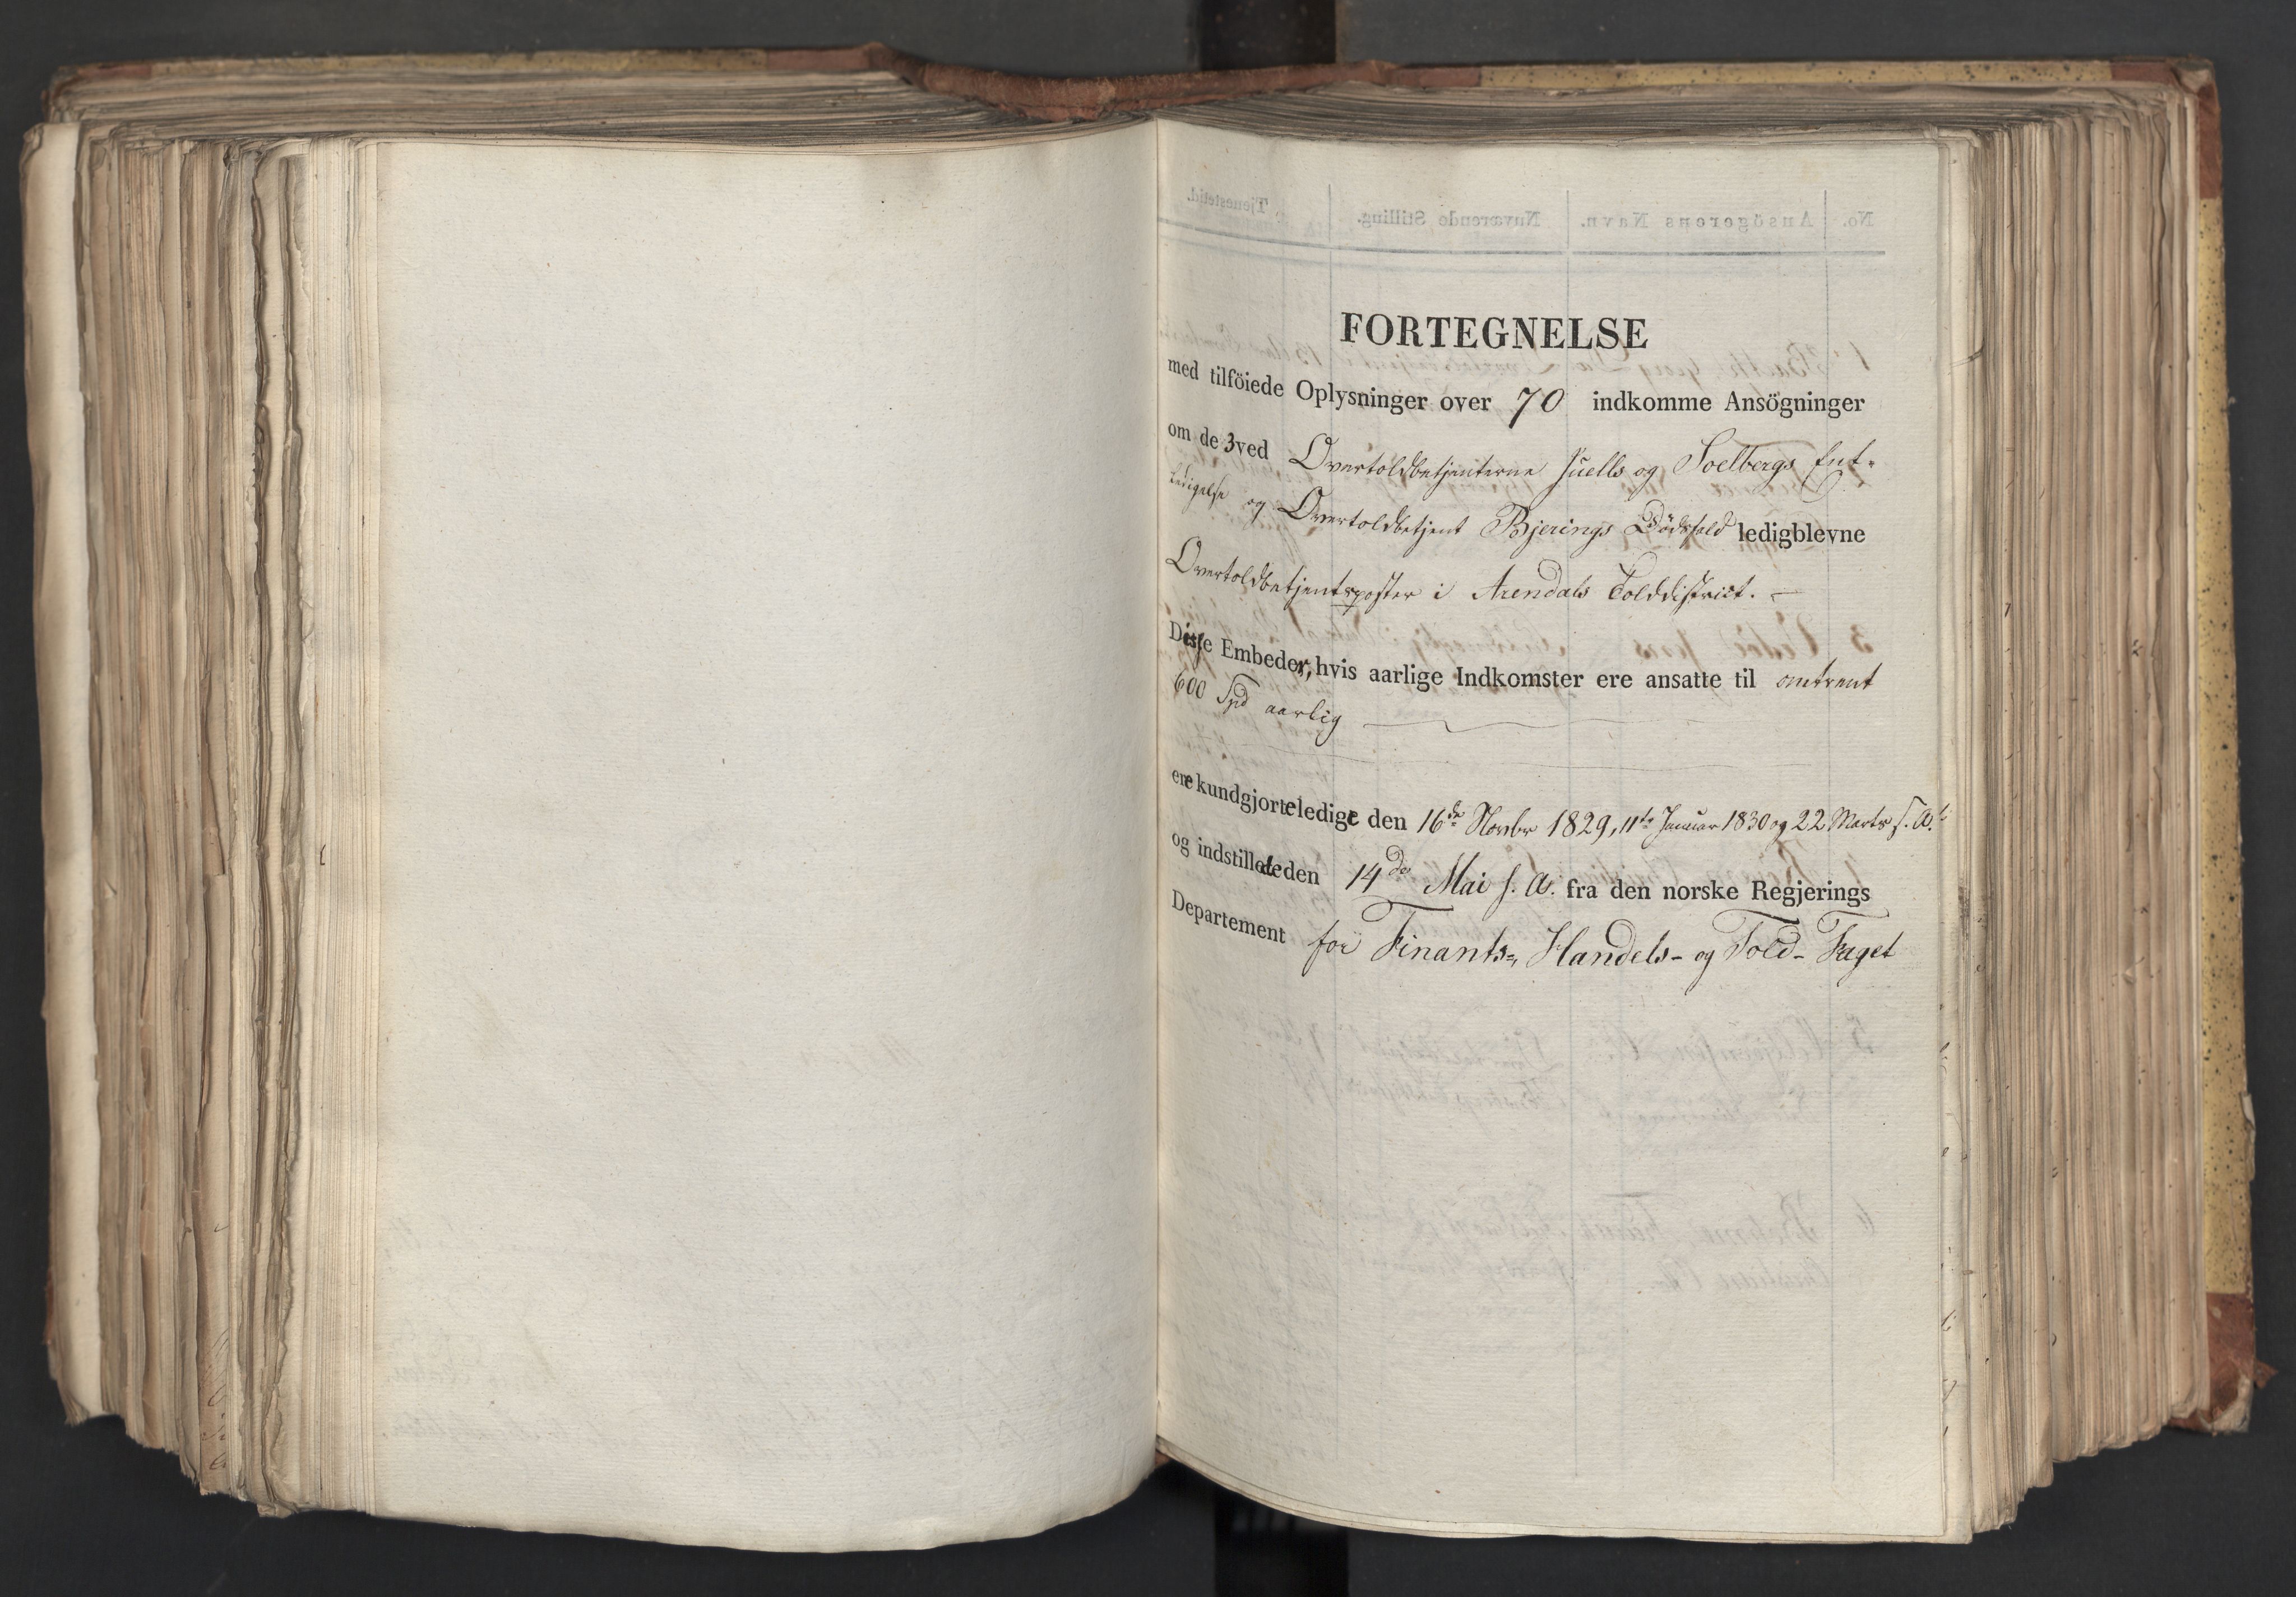 FORTEGNELSE
med tilföiede Oplysninger over 70 indkomme Ansögninger
om de 3 ved Overtoldbetjenterne Juells og Soelbergs Ent-
ledigelse og Overtoldbetjent Bjerings Dödsfald ledigblevne
Overtoldbetjentsposter i Arendals Tolddistrict. –
Disse Embeder, hvis aarlige Indkomster ere ansatte til omtrent
600 Spd aarlig
ere kundgjorte ledige den 16de Novbr 1829, 11te Januar 1830 og 22 Marts s. A.
og indstillede den 14de Mai s. A. fra den norske Regjerings
Departement for Finants-, Handels- og Told-Faget
No. Ansögerens Navn. Nuværende Stilling. Tjenestetid.